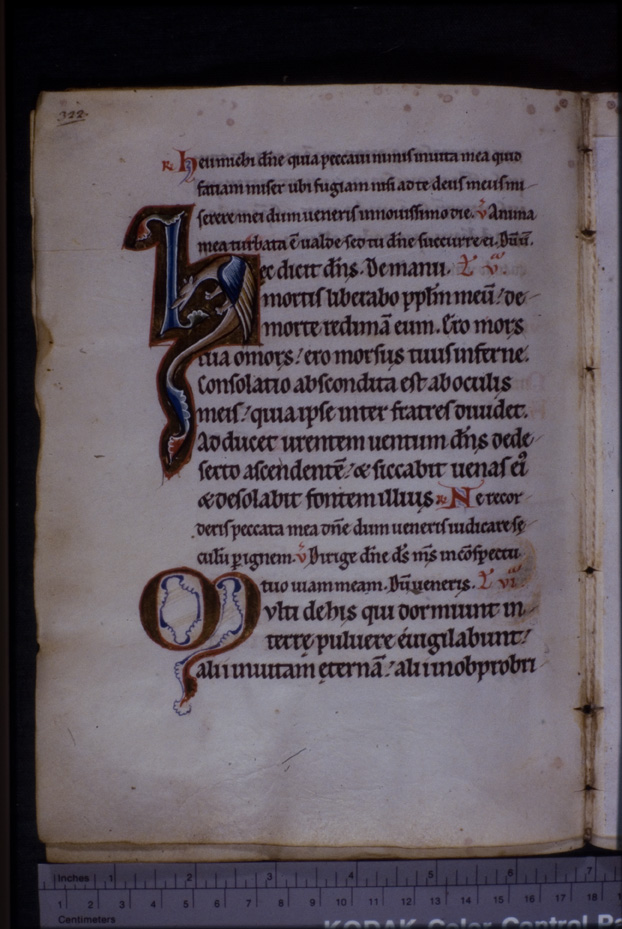 322
℟ Heu michi dn̄e quia peccaui nimis in uita mea quid
faciam miser ubi fugiam nisi ad te deus meus mi
serere mei dum ueneris in nouissimo die. ℣ Anima
mea turbata ē ualde sed tu dn̄e succurre ei. Dū ū.
Hec dicit dn̄s. De manu
mortis liberabo pp̄lm meū: de
morte redimā eum. Ero mors
tua o mors: ero morsus tuus inferne.
Consolatio abscondita est ab oculis
meis: quia ipse inter fratres diuidet.
Adducet urentem uentum dn̄s de de
serto ascendentē: & siccabit uenas ei᾿
& desolabit fontem illius ℟ Ne recor
deris peccata mea dn̄e dum ueneris iudicare sę
culū p̱ ignem. ℣ Dirige dn̄e ds̄ ms̄ in cōspectu
tuo uiam meam. Dū ueneris. L̄ vi
Multi de his qui dormiunt in
terrę puluere euigilabunt:
alii in uitam ęternā: alii in obprobri
Inches 1 2 3 4 5 6 7
1 2 3 4 5 6 7 8 9 10 11 12 13 14 15 16 17 18
Centimeters
KODAK Color Control Pa